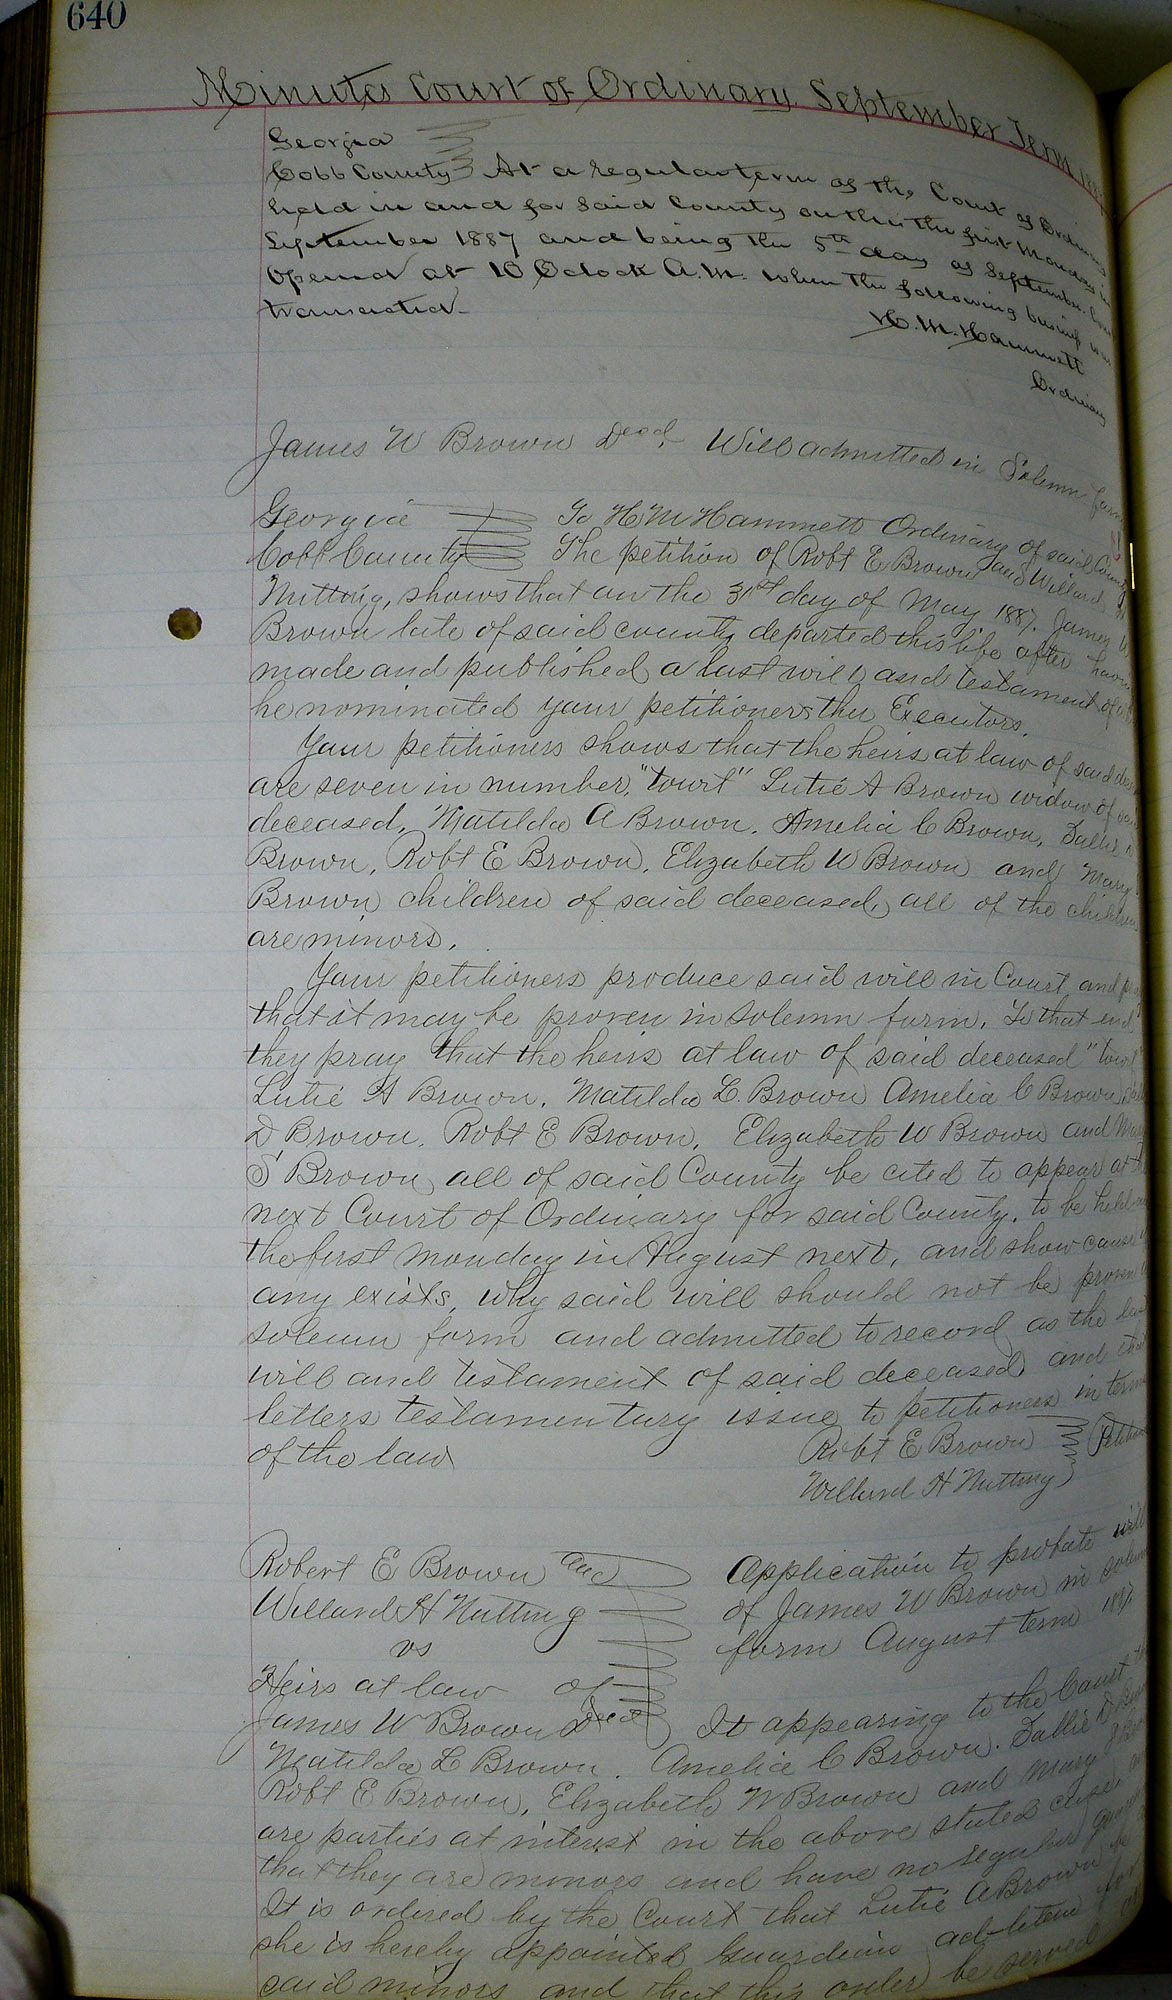 640
Minutes Court of Ordinary September Term 1887
Georgia
Cobb County At a regular term of the Court of Ordinary
held in and for said County on this the first Monday in
September 1887 and being the 5th day of September. Court
opened at 10 Oclock A.M. when the following business was
transacted.
H. M. Hammett
Ordinary
James W Brown Decd. Will admitted in Solemn form
Georgia To H M Hammett Ordinary of said County
Cobb County The petition of Robt E Brown and Willard H
Nutting, shows that on the 31st day of May 1887. James W
Brown late of said county departed this life after having
made and published a last will and testament of
he nominated your petitioners the Executors.
Your petitioners shows that the heirs at law of said
are seven in number, "towit" Lutie A Brown widow of said
deceased, Matilda A Brown. Amelia C Brown, Sallie
Brown, Robt E Brown, Elizabeth W Brown and Mary
Brown children of said deceased, all of the children
are minors.
Your petitioners produce said will in Court and
that it may be proven in solemn form. To that end
they pray that the heirs at law of said deceased "towit"
Lutie A Brown, Matilda L. Brown Amelia C Brown,
D Brown, Robt E Brown, Elizabeth W Brown and Mary
S Brown all of said County be cited to appear at the
next Court of Ordinary for said County, to be held
the first Monday in August next, and show cause
any exists, why said will should not be proven
solemn form and admitted to record as the last
will and testament of said deceased and
letters testamentary issue to petitioners in terms
of the law Robt E Brown
Willard H Nutting
Robert E Brown and Application to probate will
Willard H Nutting of James W Brown in solemn
vs form August term 1887
Heirs at law of
James W Brown Decd It appearing to the Court
Matilda L Brown. Amelia C Brown. Sallie D Brown
Robt E Brown, Elizabeth W Brown and Mary S
are parties at interest in the above stated case
that they are minors and have no regular
It is ordered by the Court that Lutie A Brown be
she is hereby appointed Guardian ad litem for
said minors and that this order be served